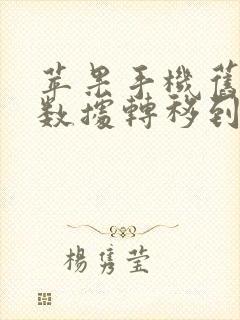 苹果手機舊
數據轉移到
楊雋莹